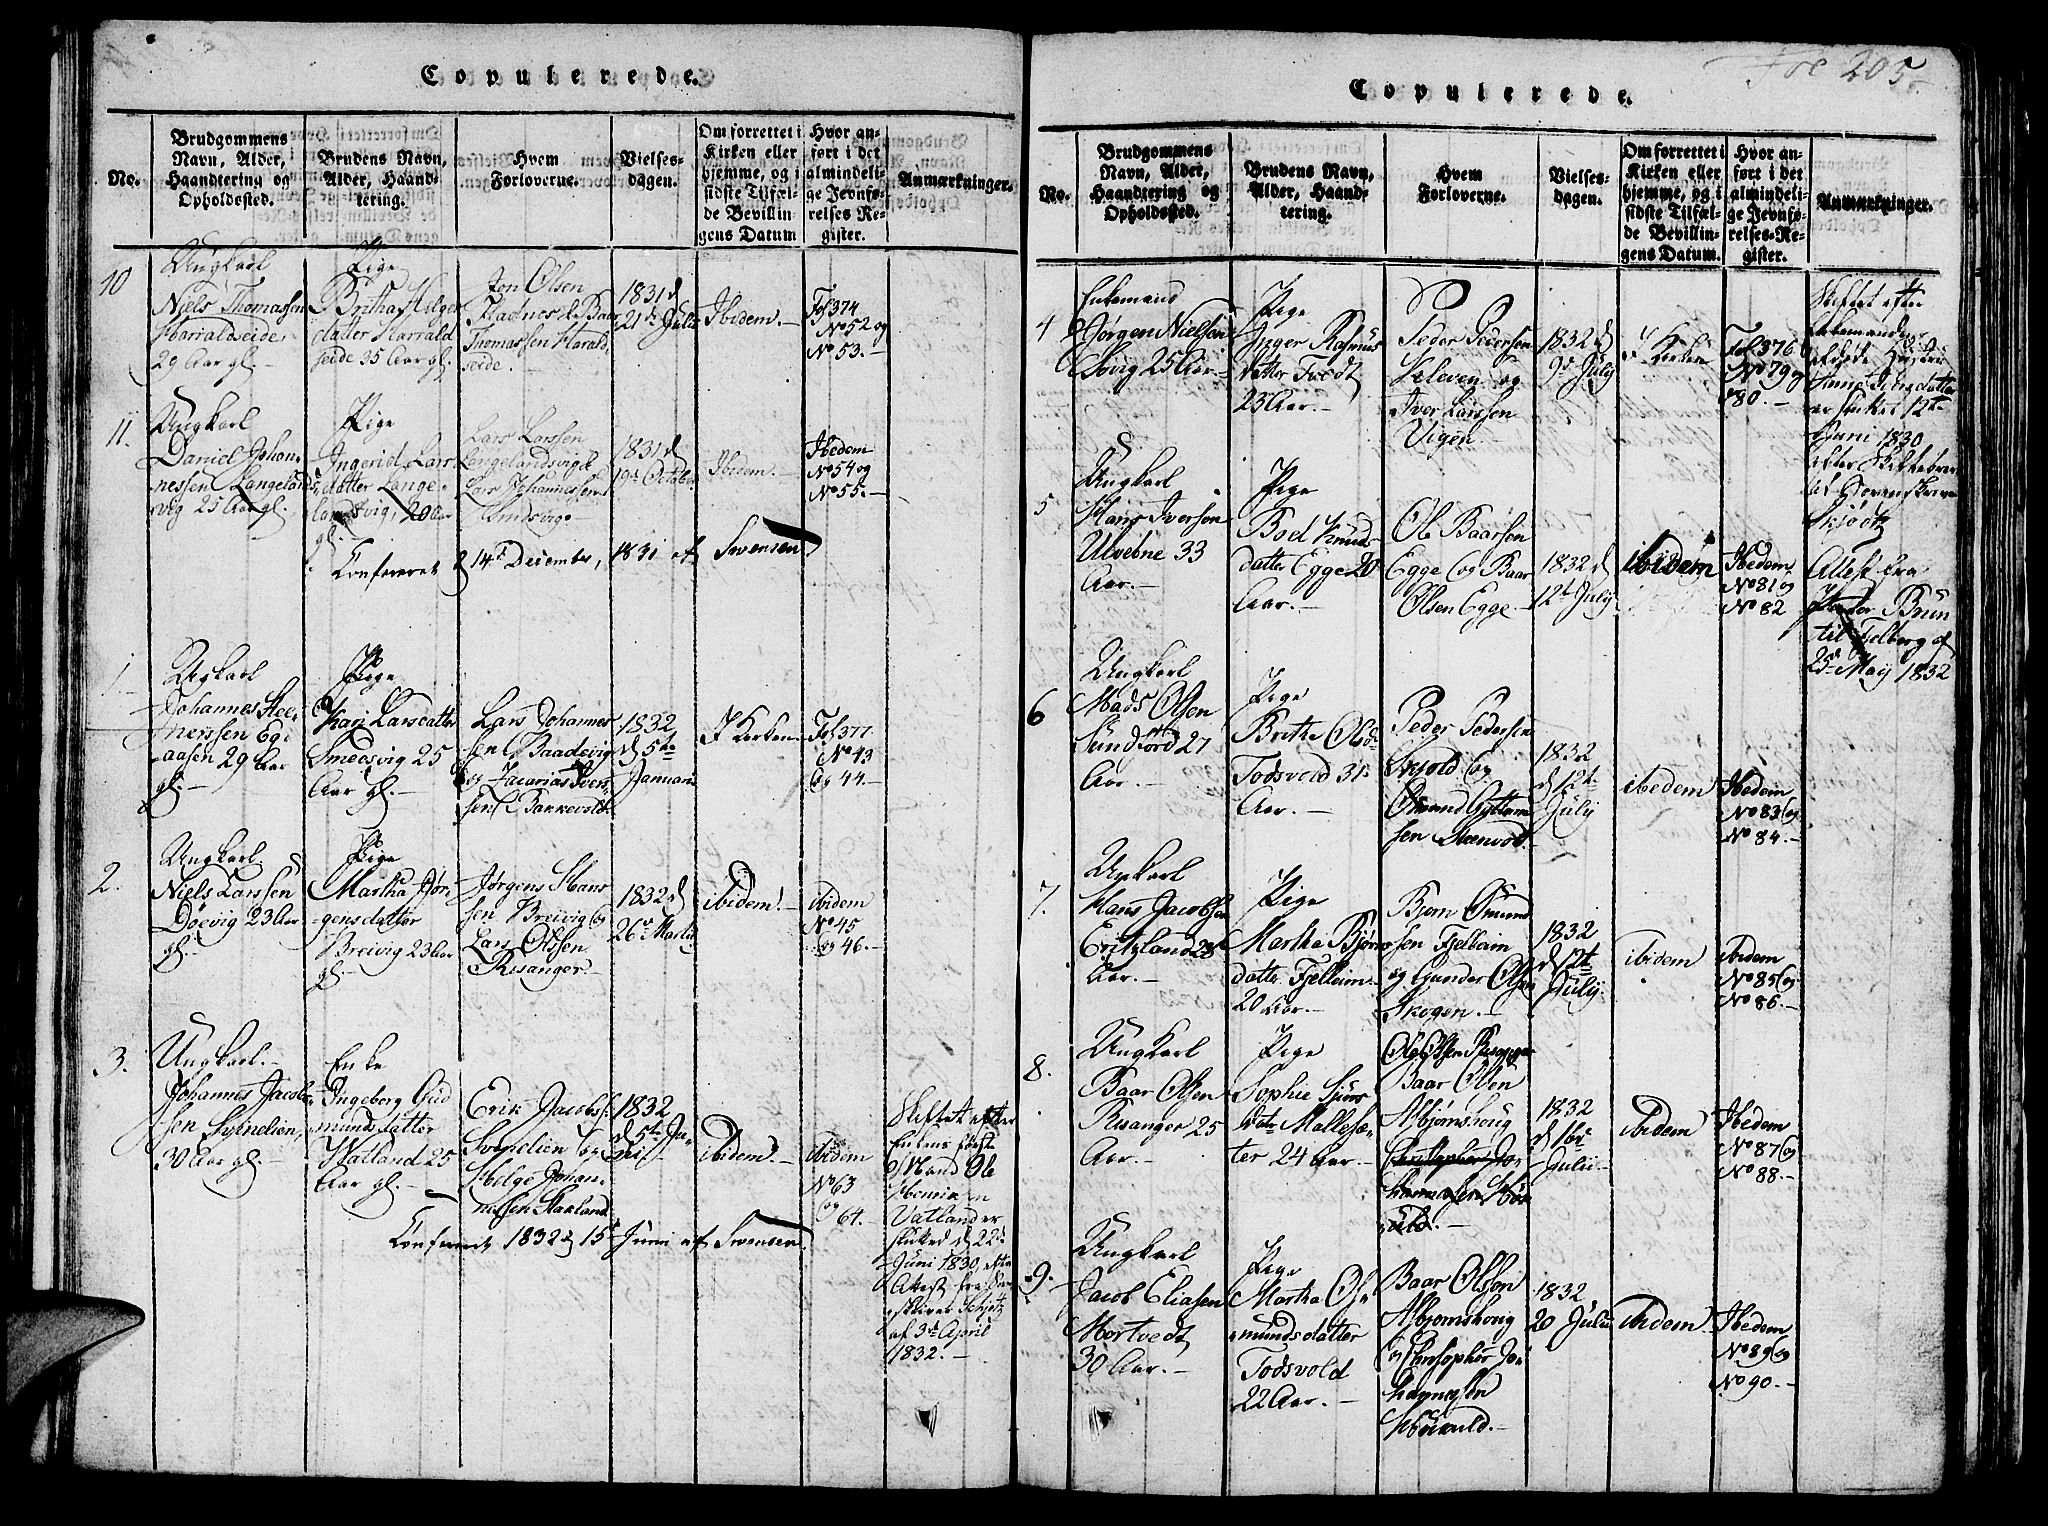 Copulerede.
No.
Brudgommens
Navn, Alder,
Haandtering og
Opholdested.
Brudens Navn,
Alder, Haand-
tering.
Hvem
Forloverne.
Vielses-
dagen.
Om forrettet i
Kirken eller
hjemme, og i
sidste Tilfæl-
de Bevillin-
gens Datum
Hvor an-
ført i det
almindeli-
ge Jevnfø-
relses Re-
gister.
Anmærkninger.
10
Ungkarl
Niels Thomassen
Harraldseide
29 Aar gl. -
Pige
Britha Helge
datter Harrald
seide 35 Aar gl.
Jon Olsen
Thomassen Harald
seide.
1831 d
21de Juli
Ibidem. -
Fol 374
No 52 og
No 53. -
11.
Ungkarl
Daniel Johan-
nessen Langelands
vig 25 Aar gl.
Pige
Ingerid Lars
datter Lange-
landsvig, 20 Aar
gl.
Lars Larssen
Langelandsvig &
Lars Johannessen
1831 d
19de October
Ibidem. -
Ibedem
No 54 og
No 55. -
Confereret d 14de December, 1831 af Svensen
1
Ungkarl
Johannes Stee-
nersen Egi-
aasen 29 Aar
gl. -
Pige
Kari Larsdatter
Smedsvig 25
Aar gl. -
Lars Johannes
sen Baadsvig
og Zacarias Iver-
sen Bakkevold
1832
d 5te
Januari
I Kirken
Fol 377
No 43
og 44. -
2.
Ungkarl
Niels Larssen
Døevig 23 Aar
gl. -
Pige
Martha Jør-
gensdatter
Breivig 23 Aar
gl. -
Jørgens Hans
sen Breivig og
Lars Olssen
Risanger -
1832 d
26de Marti
ibidem. -
ibidem
No 45
og 46. -
3.
Ungkarl. -
Johannes Jacob-
sen Svenelien,
30 Aar gl. -
Enke
Ingeborg Gud
munds datter
Watland 25
Aar gl. -
Erik Jacobs
Svenelien og
Helge Johan-
nessen Stakland
1832
d 5te Ju-
ni -
ibidem. -
ibidem
No 63
og 64. -
Skiftet efter
Enkens første
Mand Ole
Henriksen
Vatland er
sluted d 22de
Juni 1830, efter
Attest fra Sor-
enskriver Schjøtz
af 3de April
1832. -
Confereret 1832 d 15de Juni af Svensen.
Fol 205
Copulerede.
No.
Brudgommens
Navn, Alder,
Haandtering og
Opholdsted.
Brudens Navn,
Alder, Haand-
tering.
Hvem
Forloverne.
Vielses-
dagen.
Om forrettet i
Kirken eller
hjemme, og i
sidste Tilfæl-
de Bevillin-
gens Datum.
Hvor an-
ført i det
almindeli-
ge Jevnfø-
relses-Re-
gister.
Anmærkninger.
4
Enkemand
Jørgen Nielsen
25 Aar -
Pige
Inger Rasmus
datter Tvedt
23 Aar. -
Peder Pedersen
Eleven og
Iver Larssen
Vigen -
1832 d
9de July
I Kirken
Fol 376
No 79 og
80. -
Skiftet efter
Enkemandens
afdøde Hustru
Anne Jensdatter
er sluttet 12te
Juni 1830
efter Skiftebrev
af Sorenskriver
Skjøtz
5
Ungkarl
Hans Iversen
Ulvebne 33
Aar. -
Pige
Boel Knud
datter Egge 20
Aar. -
Ole Baarsen
Egge og Baar
Olsen Egge -
1832 d
12te July
ibidem
Ibedem
No 81 og
No 82
Attest fra
Pastor Brun
til Fjelberg af
25de May 1832
6
Ungkarl
Mads Olsen
Sundfiord 27
Aar. -
Pige
Brithe Olsd
Todsvold 31
Aar. -
Peder Pedersen
Skjold og
Omund Guttorm
sen
1832
d 12te
July
ibedem
Ibedem
No 83 og
No 84. -
7.
Ungkarl
Hans Jacobsen
Eritzland 28
Aar. -
Pige
Martha Bjørn
datter Fjelheim -
20 Aar. -
Bjørn Omund
sen Fjelheim
og Gunder Olsen
Skogen. -
1832
d 12te
July
ibidem
ibidem
No 85 og
No 86. -
8.
Ungkarl
Baar Olsen
Risanger 25
Aar. -
Pige
Sophie Sjurs
dater Mallesæ-
ter 24 Aar. -
Baar Olsen
Asbjørnshoug
1832
d 16de
July
ibidem
Ibedem
No 87 og
No 88. -
9.
Ungkarl
Jacob Eliasen
Mortvedt
30 Aar. -
Pige
Martha Os-
munds datter
Todsvold
22 Aar. -
Baar Olsson
Asbjørnshoug
og Christopher Jo-
hannesen
1832
20 Julii
ibidem.
Ibedem
No 89 og
No 90. -